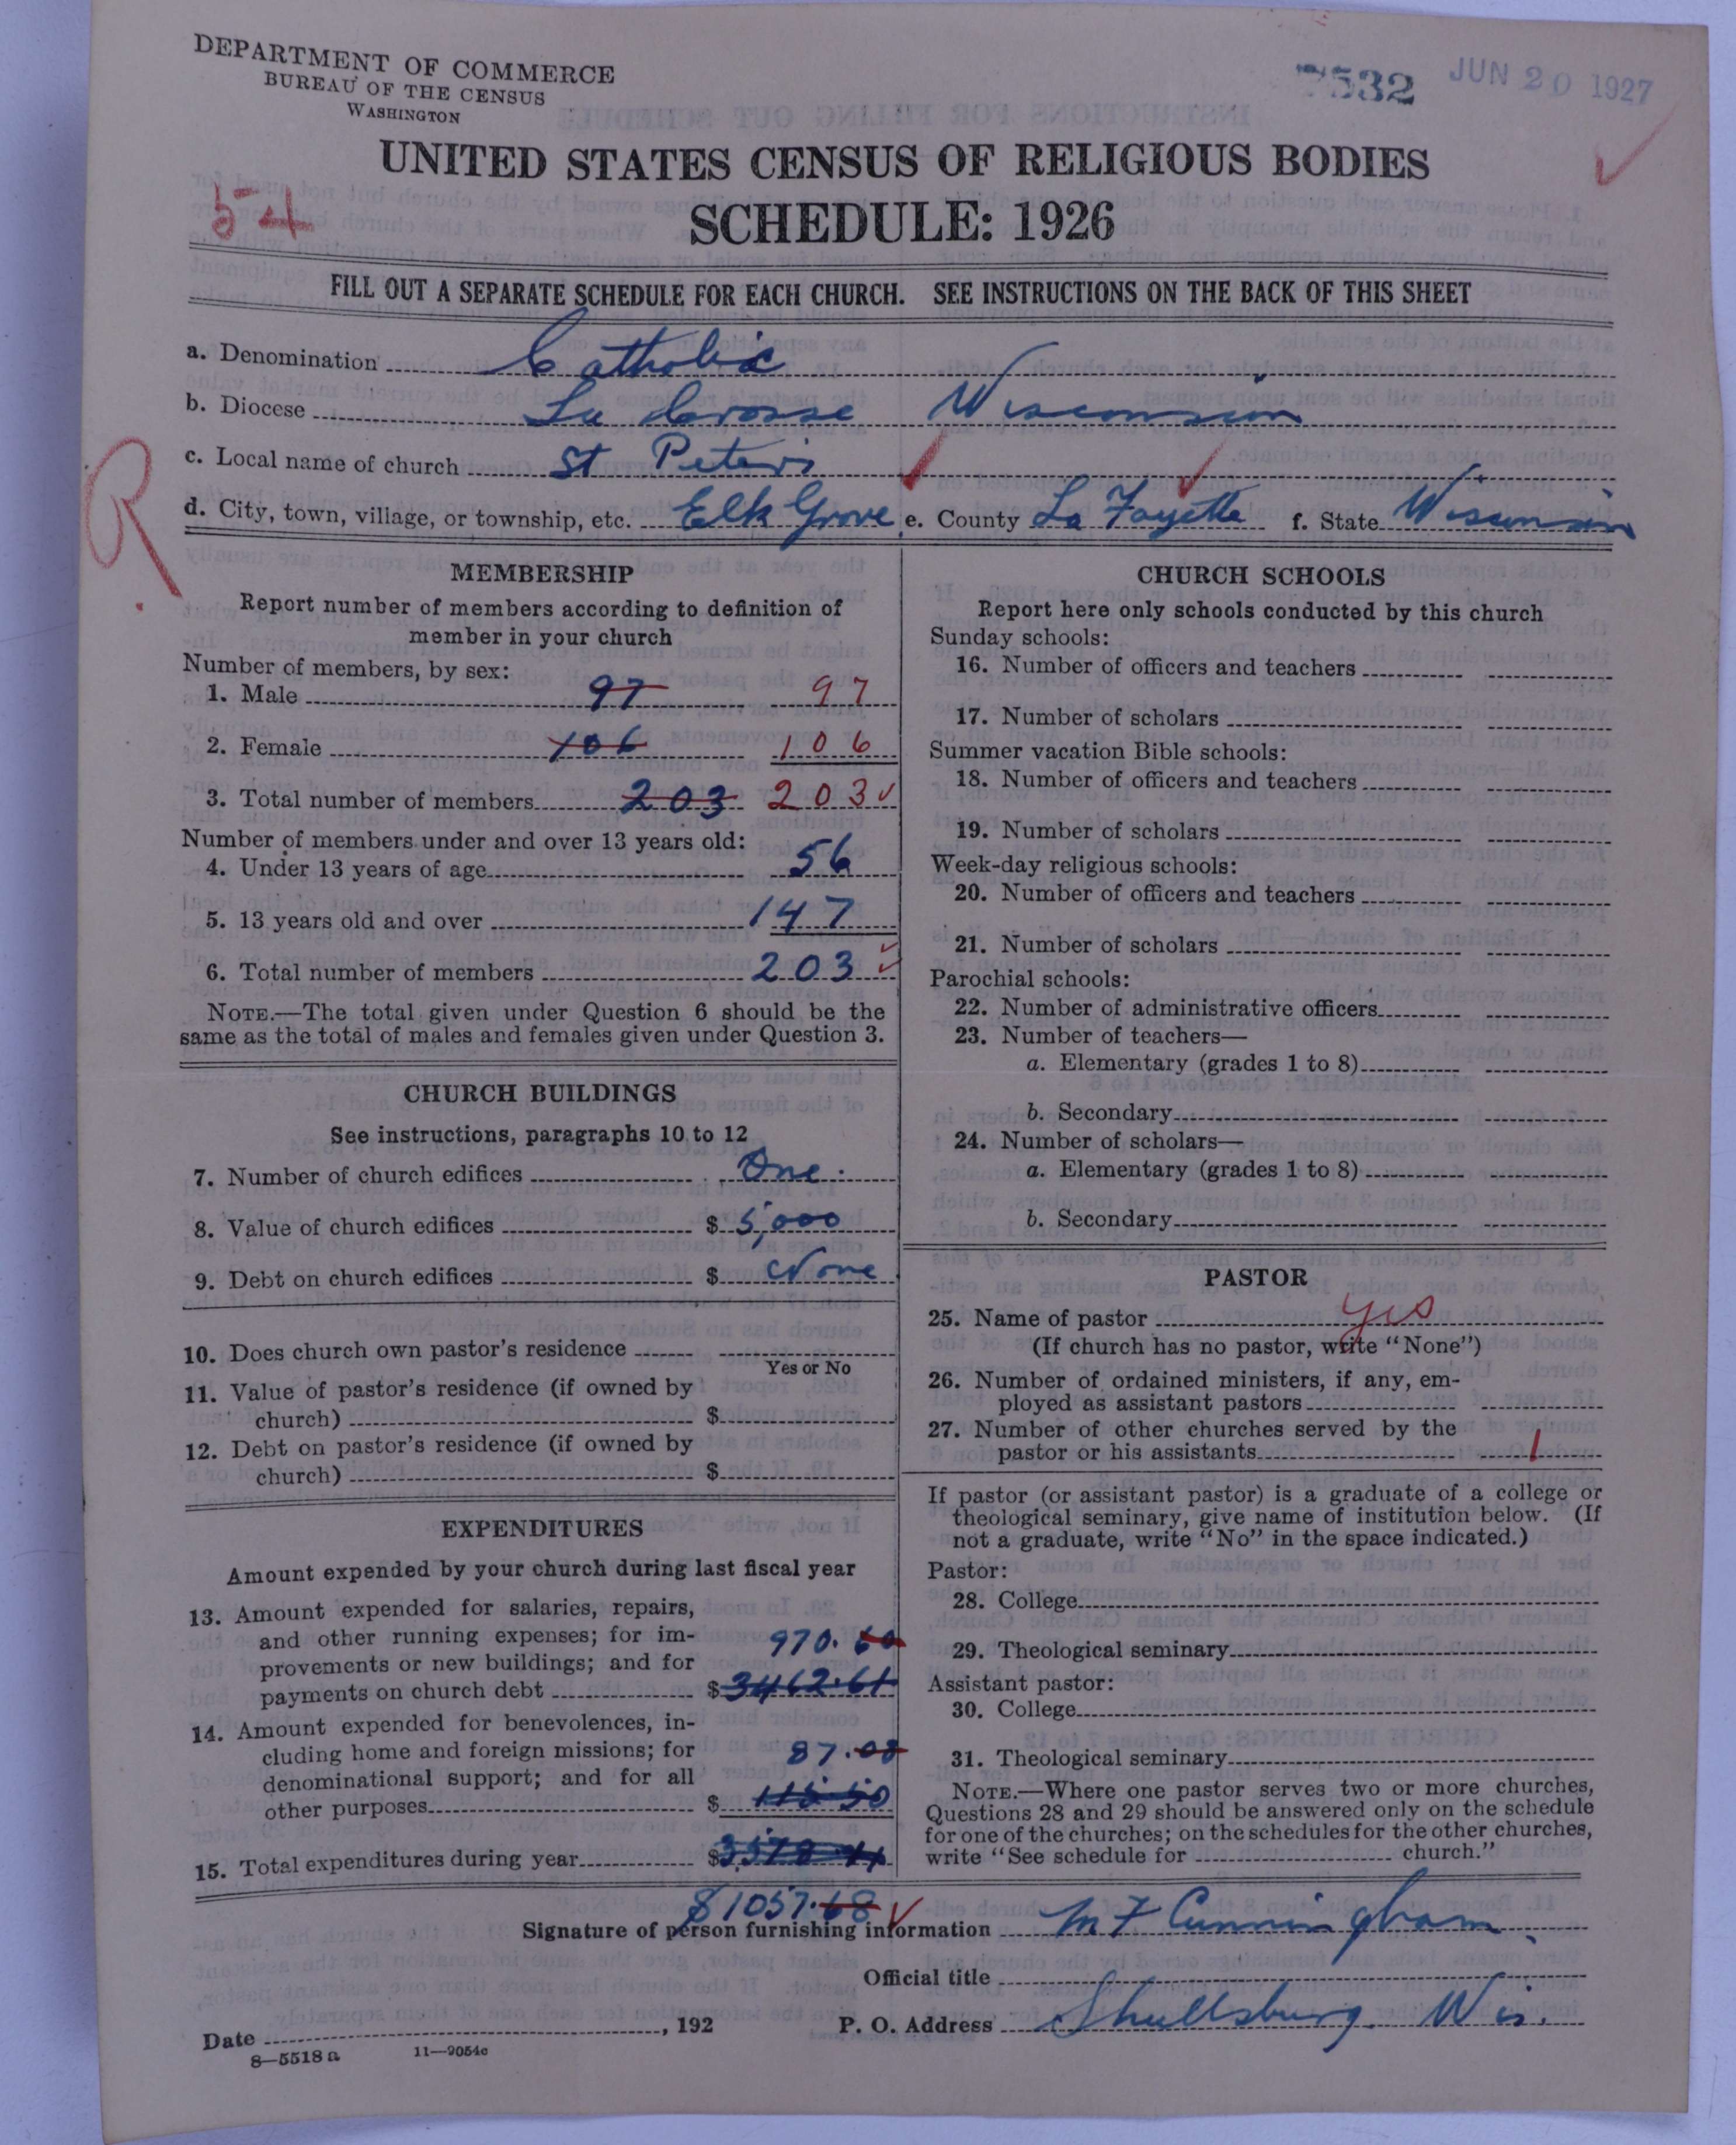 DEPARTMENT OF COMMERCE
BUREAU OF THE CENSUS
WASHINGTON
7532 JUN 20 1927
UNITED STATES CENSUS OF RELIGIOUS BODIES
54
SCHEDULE: 1926
FILL OUT A SEPARATE SCHEDULE FOR EACH CHURCH. SEE INSTRUCTIONS ON THE BACK OF THIS SHEET
a. Denomination Catholic
b. Diocese La Crosse Wisconsin
c. Local name of church St Peters
d. City, town, village, or township, etc. Elk Grove e. County La Fayette f. State Wisconsin
R
MEMBERSHIP
Report number of members according to definition of
member in your church
Number of members, by sex:
1. Male 97 97
2. Female 106 106
3. Total number of members 203 203
Number of members under and over 13 years old:
4. Under 13 years of age 56
5. 13 years old and over 147
6. Total number of members 203
NOTE.—The total given under Question 6 should be the
same as the total of males and females given under Question 3.
CHURCH BUILDINGS
See instructions, paragraphs 10 to 12
7. Number of church edifices One.
8. Value of church edifices $ 5,000
9. Debt on church edifices $ None
10. Does church own pastor's residence
Yes or No
11. Value of pastor's residence (if owned by
church) $
12. Debt on pastor's residence (if owned by
church) $
EXPENDITURES
Amount expended by your church during last fiscal year
13. Amount expended for salaries, repairs,
and other running expenses; for im-
970.60
provements or new buildings; and for
payments on church debt $ 3462.61
14. Amount expended for benevolences, in-
cluding home and foreign missions; for
87.08
denominational support; and for all
other purposes $
15. Total expenditures during year $
$1057.68
CHURCH SCHOOLS
Report here only schools conducted by this church
Sunday schools:
16. Number of officers and teachers
17. Number of scholars
Summer vacation Bible schools:
18. Number of officers and teachers
19. Number of scholars
Week-day religious schools:
20. Number of officers and teachers
21. Number of scholars
Parochial schools:
22. Number of administrative officers
23. Number of teachers—
a. Elementary (grades 1 to 8)
b. Secondary
24. Number of scholars—
a. Elementary (grades 1 to 8)
b. Secondary
PASTOR
25. Name of pastor yes
(If church has no pastor, write "None")
26. Number of ordained ministers, if any, em-
ployed as assistant pastors
27. Number of other churches served by the
pastor or his assistants 1
If pastor (or assistant pastor) is a graduate of a college or
theological seminary, give name of institution below. (If
not a graduate, write "No" in the space indicated.)
Pastor:
28. College
29. Theological seminary
Assistant pastor:
30. College
31. Theological seminary
NOTE.—Where one pastor serves two or more churches,
Questions 28 and 29 should be answered only on the schedule
for one of the churches; on the schedules for the other churches,
write "See schedule for church."
Signature of person furnishing information M F Cunningham
Official title
Date , 192 P. O. Address Shullsburg. Wis.
8—5518 a 11—9054c